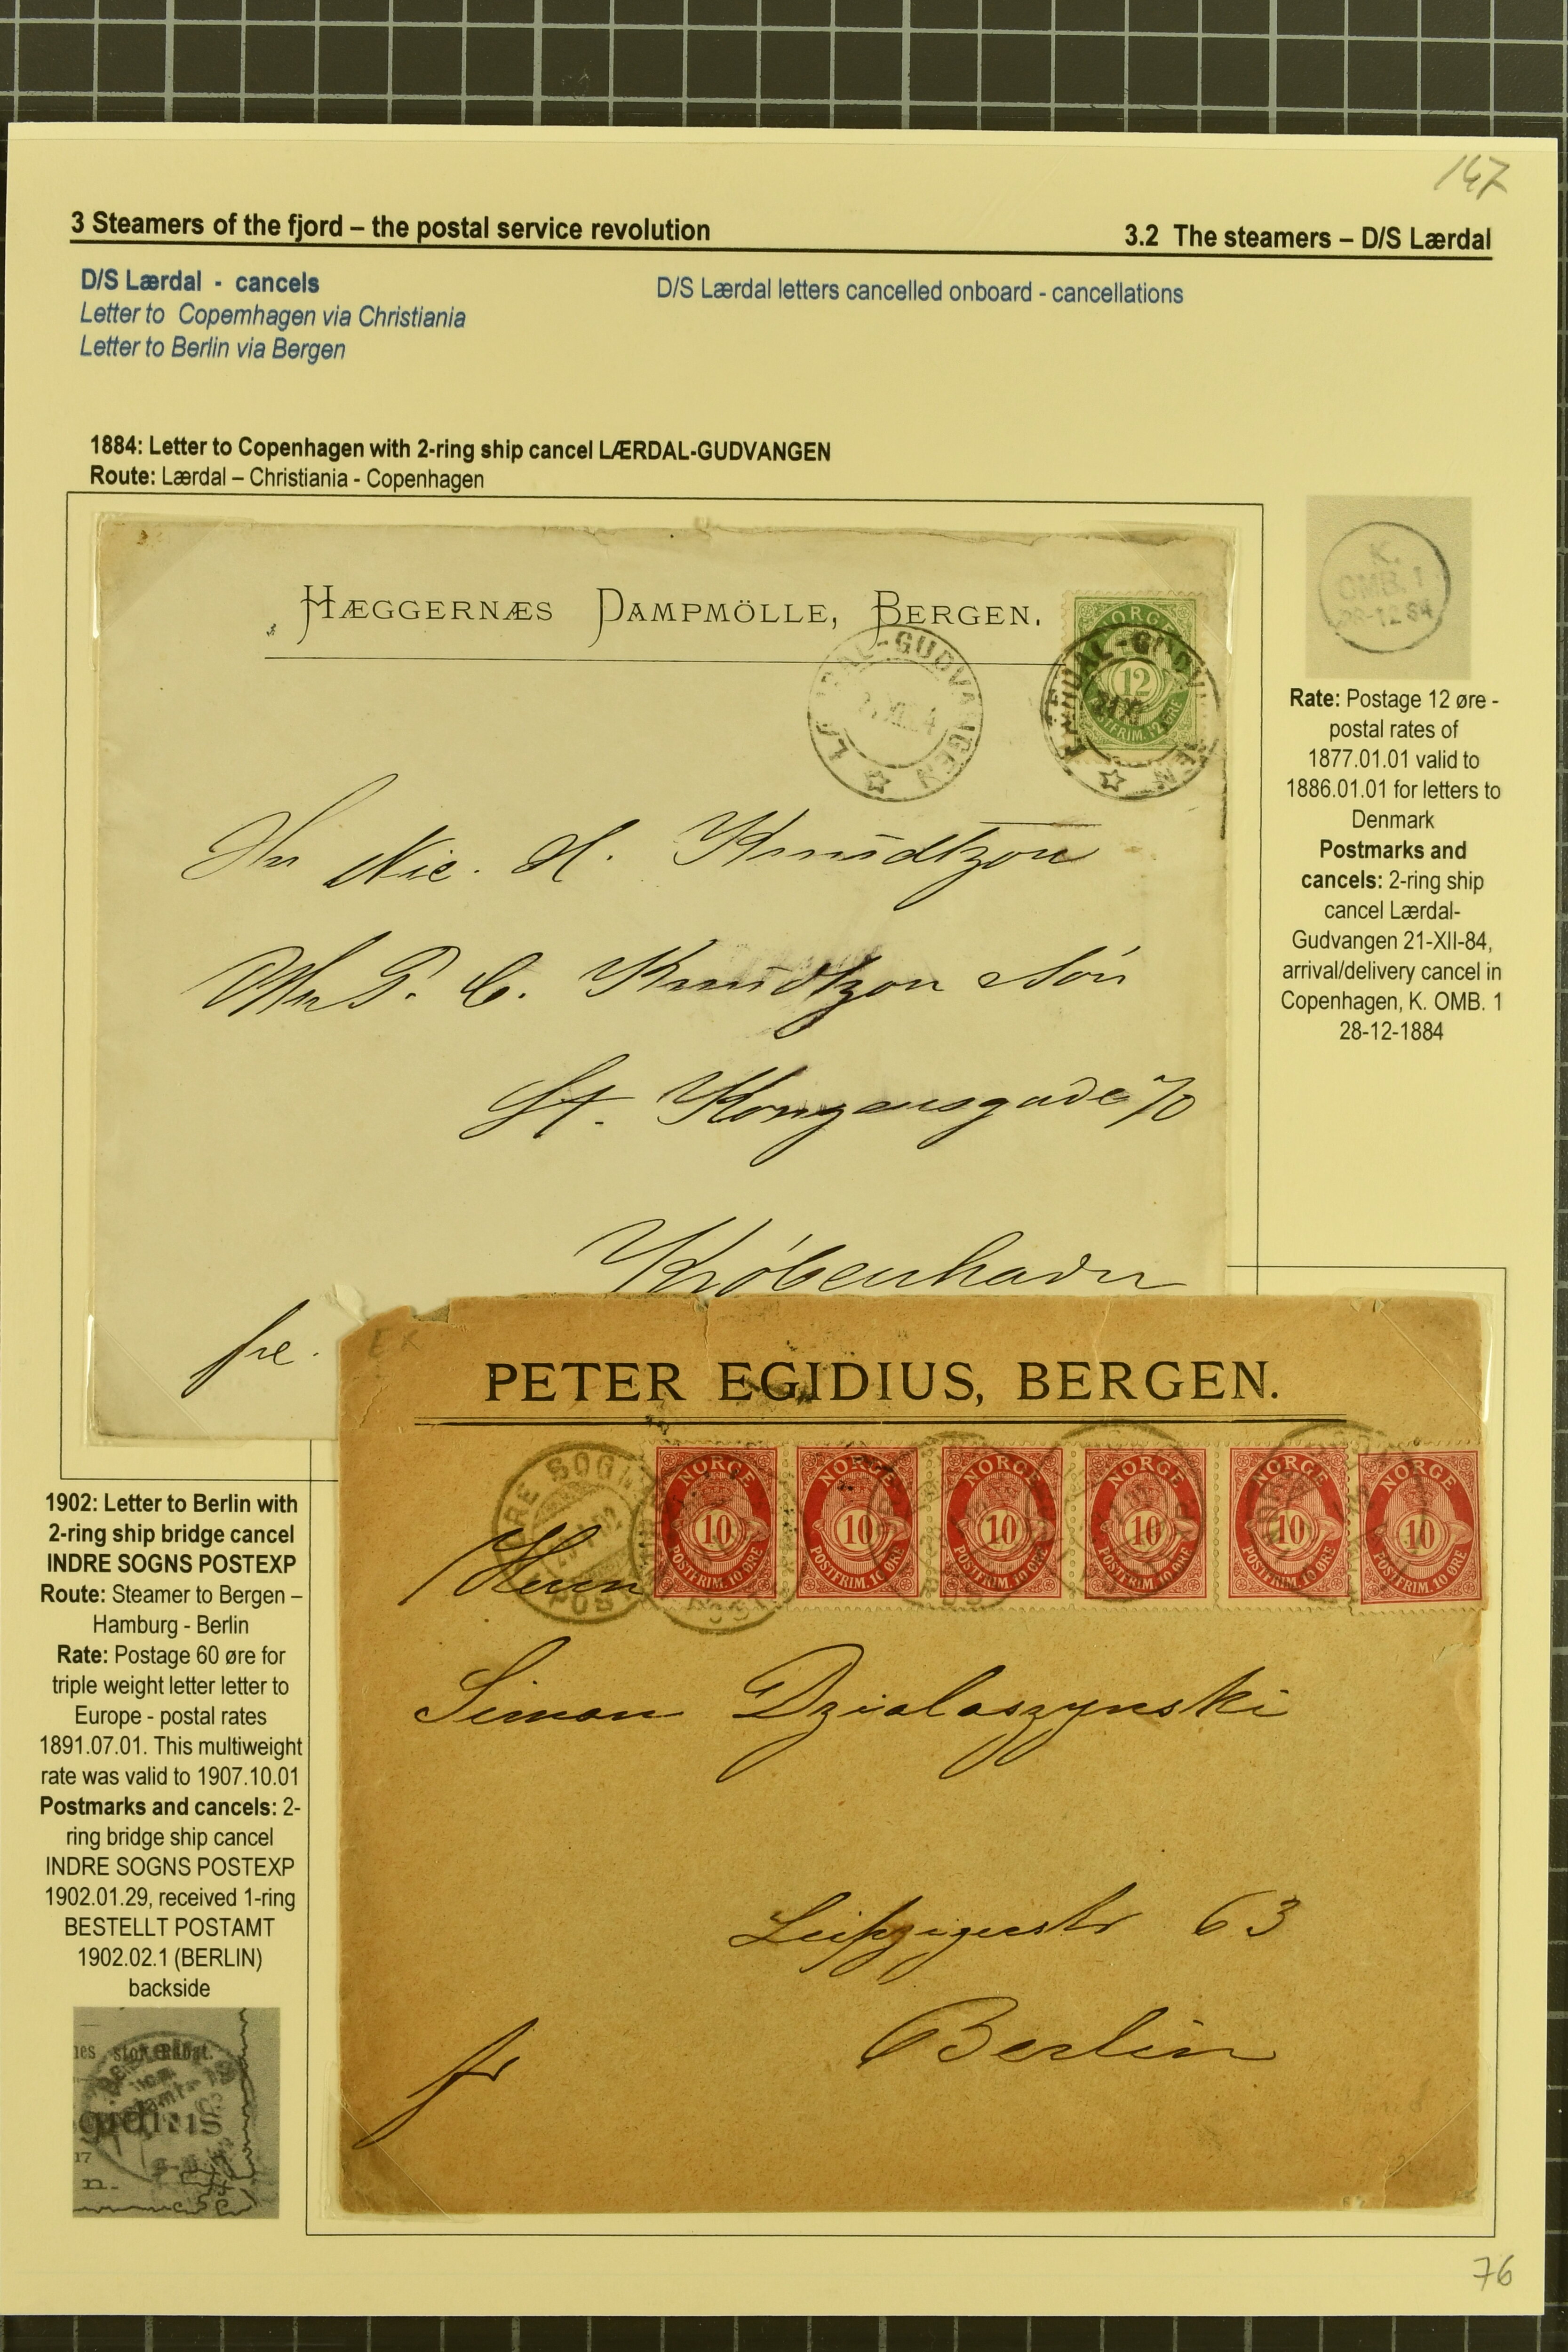 147
3 Steamers of the fjord – the postal service revolution
3.2 The steamers – D/S Lærdal
D/S Lærdal - cancels
D/S Lærdal letters cancelled onboard - cancellations
Letter to Copemhagen via Christiania
Letter to Berlin via Bergen
1884: Letter to Copenhagen with 2-ring ship cancel LÆRDAL-GUDVANGEN
Route: Lærdal – Christiania - Copenhagen
HÆGGERNÆS DAMPMÖLLE, BERGEN.
NORGE
12
LÆRDAL-GUDVANGEN
LÆRDAL-GUDVANGEN
K.
OMB. 1
28-12 84
Rate: Postage 12 øre -
postal rates of
1877.01.01 valid to
1886.01.01 for letters to
Denmark
Postmarks and
cancels: 2-ring ship
cancel Lærdal-
Gudvangen 21-XII-84,
arrival/delivery cancel in
Copenhagen, K. OMB. 1
28-12-1884
Hr Nic. H. Knudtzon
P. C. Knudtzon Søn
St. Kongensgade 70
Kröbenhavn
fre.
EK
PETER EGIDIUS, BERGEN.
NORGE 10 POSTFRIM. 10 ØRE
NORGE 10 POSTFRIM. 10 ØRE
NORGE 10 POSTFRIM. 10 ØRE
NORGE 10 POSTFRIM. 10 ØRE
NORGE 10 POSTFRIM. 10 ØRE
NORGE 10 POSTFRIM. 10 ØRE
Herrn
Simon Dzialoszynski
Leipzigerstr 63
Berlin
fr
1902: Letter to Berlin with
2-ring ship bridge cancel
INDRE SOGNS POSTEXP
Route: Steamer to Bergen –
Hamburg - Berlin
Rate: Postage 60 øre for
triple weight letter letter to
Europe - postal rates
1891.07.01. This multiweight
rate was valid to 1907.10.01
Postmarks and cancels: 2-
ring bridge ship cancel
INDRE SOGNS POSTEXP
1902.01.29, received 1-ring
BESTELLT POSTAMT
1902.02.1 (BERLIN)
backside
76